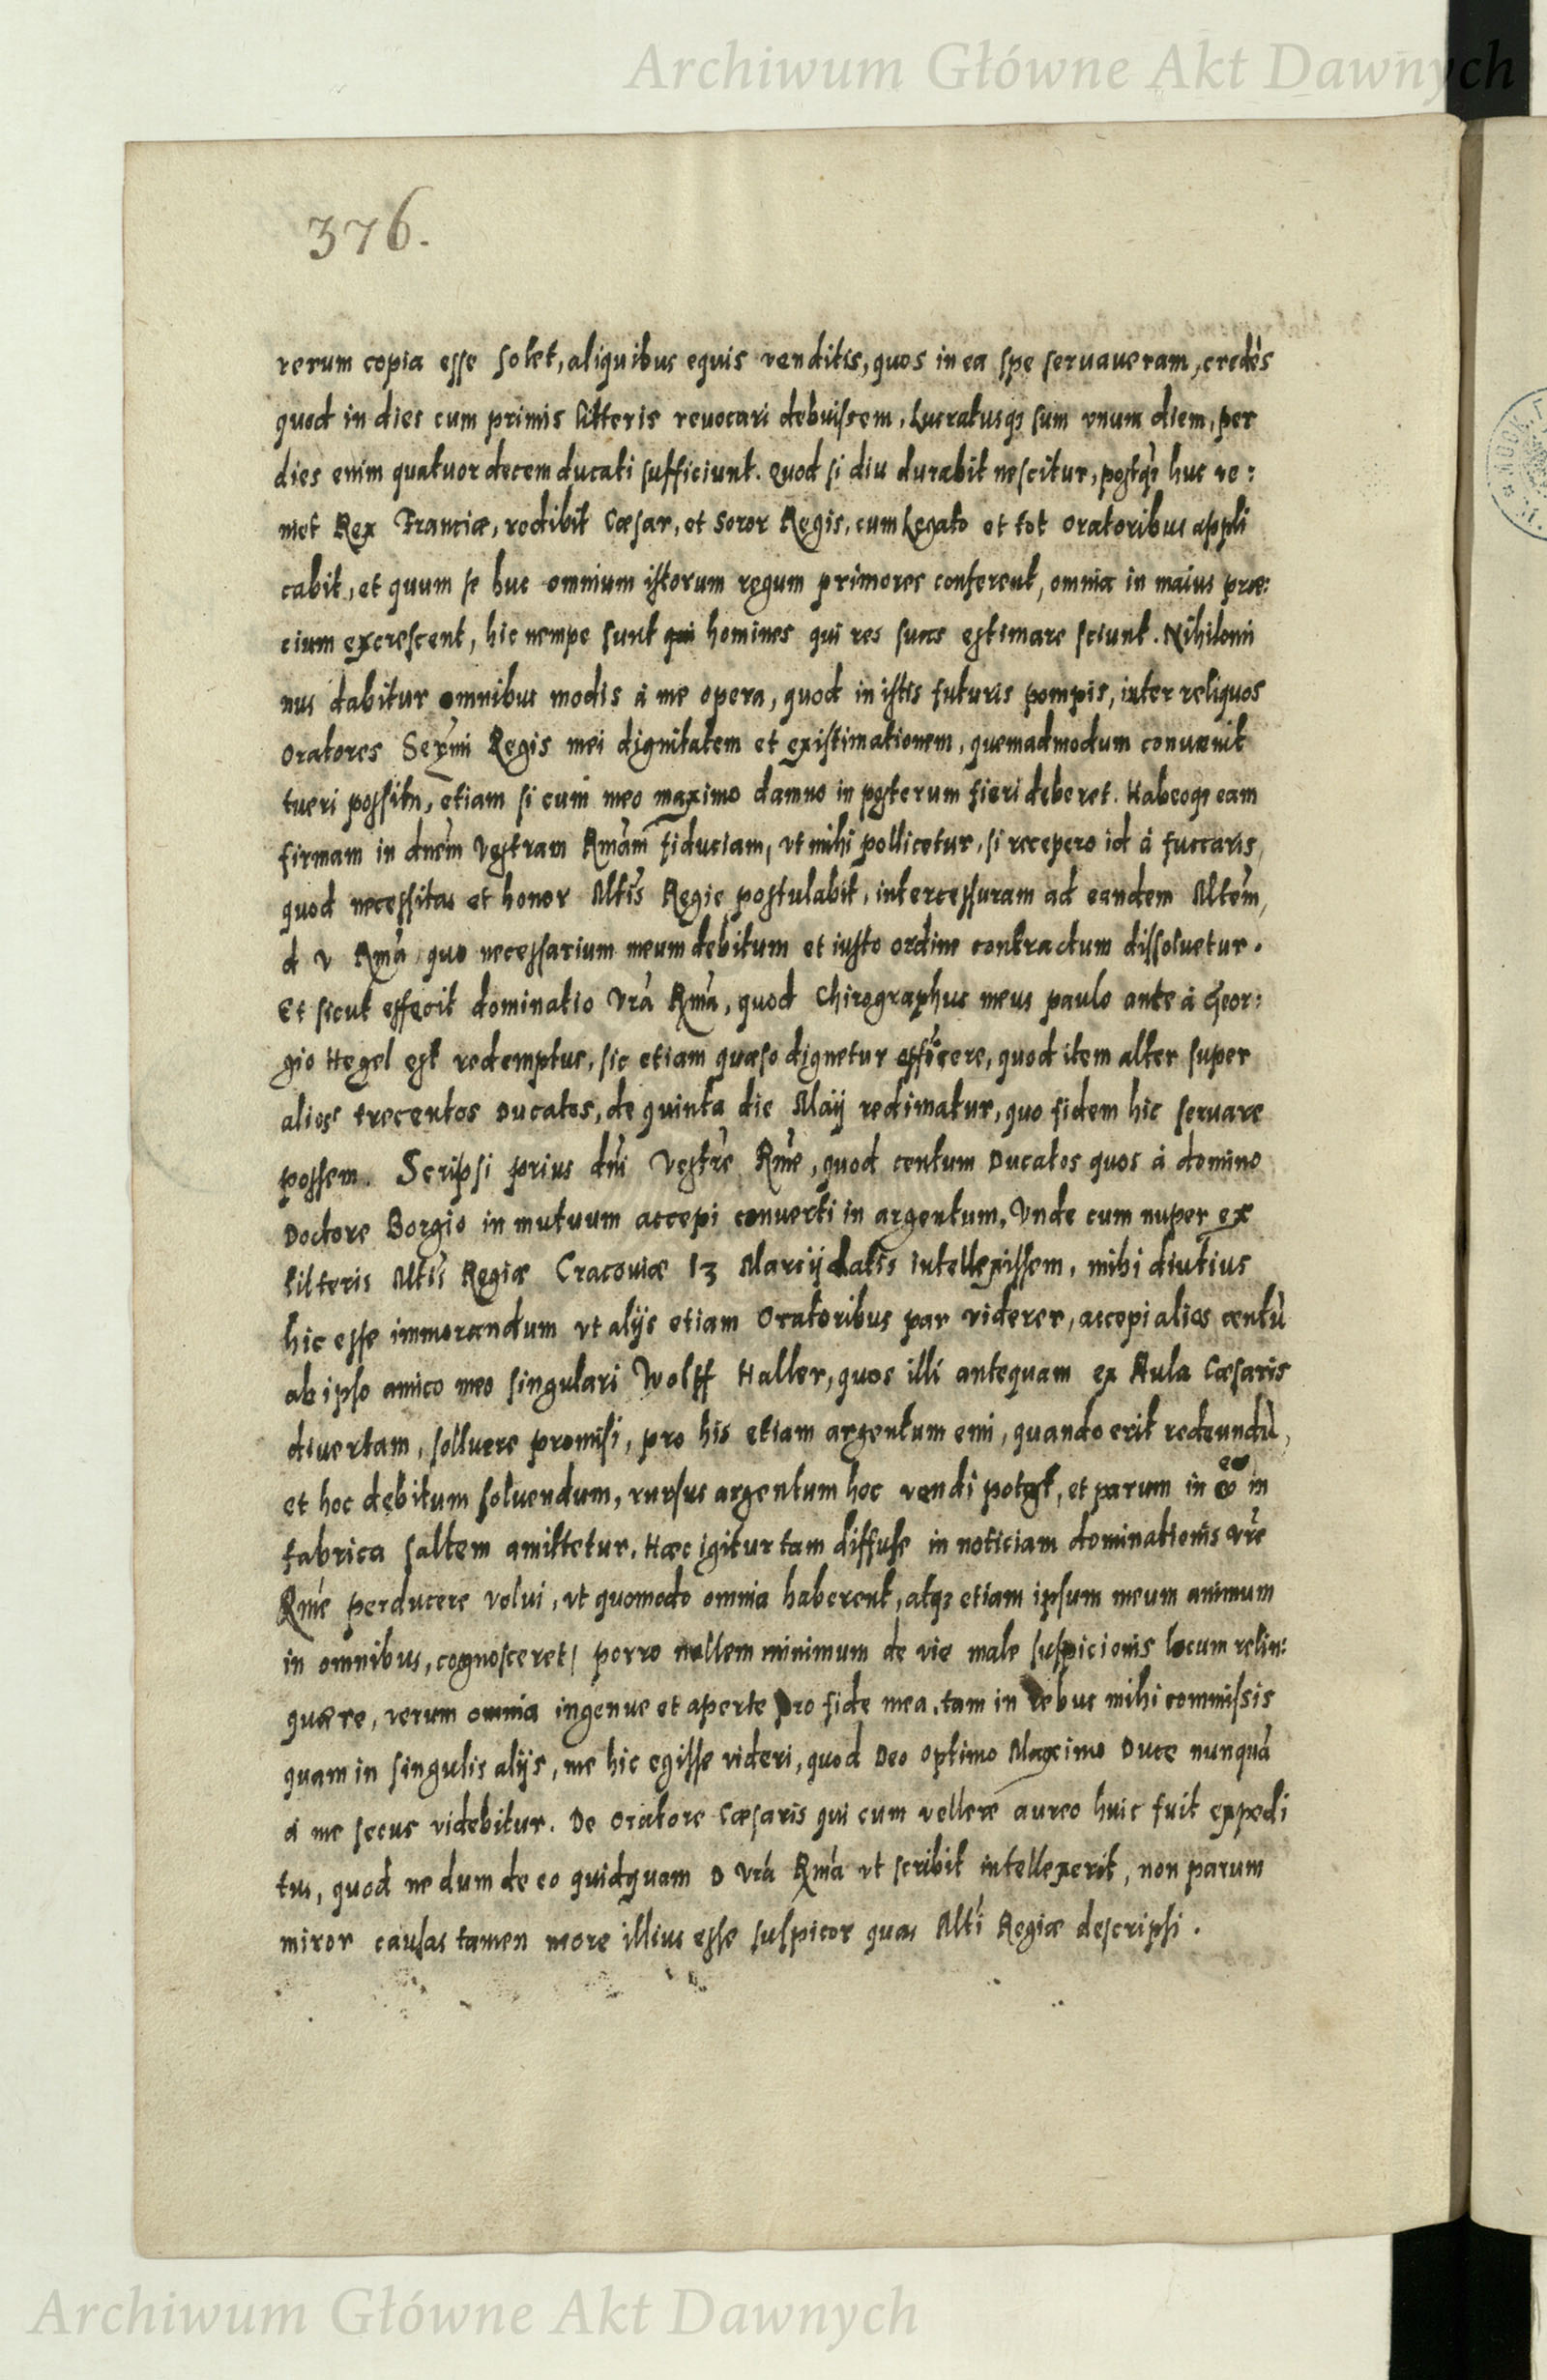 Archiwum Główne Akt Dawnych
376.
rerum copia esse solet, aliquibus equis venditis, quos in ea spe servaveram, credēs
quod in dies cum primis litteris revocari debuissem, Lucratusq3 sum vnum diem, per
dies enim quatuordecem ducati sufficiunt. Quod si diu durabit nescitur, postq̄ huc ve:
niet Rex Franciæ, redibit Cæsar, et Soror Regis, cum Legato et tot Oratoribus appli
cabit, et quum se huc omnium istorum regum primores conferent, omnia in maius præ:
cium excrescent, hic nempe sunt homines qui res suas estimare sciunt. Nihilomi
nus dabitur omnibus modis à me opera, quod in istis futuris pompis, inter reliquos
Oratores Serm̄i Regis mei dignitatem et existimationem, quemadmodum convænit
tueri possim, etiam si cum meo maximo damno in posterum fieri deberet. Habeoq3 eam
firmam in dnēm Vestram Rmām fiduciam, vt mihi pollicetur, si recepero id à fuccaris,
quod necessitas et honor Altīs Regie postulabit, intercessuram ad eandem Altēm,
d v Rmā quo necessarium meum debitum et iusto ordine contractum dissolvetur.
Et sicut effecit dominatio Vrā Rmā, quod Chirographus meus paulo ante à Geor:
gio Hegel est redemptus, sic etiam quæso dignetur efficere, quod item alter super
alios trecentos Ducatos, de quinta die Maij redimatur, quo fidem hic servare
possem. Scripsi prius dn̄i Vestrē Rmē, quod centum Ducatos quos à domino
Doctore Borgio in mutuum accepi converti in argentum, Vnde cum nuper ex
litteris Altīs Regiæ Cracoviæ 13 Marcij datis intellexissem, mihi diutius
hic esse immorandum vt alijs etiam Oratoribus par viderer, accepi alios centū
ab ipso amico meo singulari Wolff Haller, quos illi antequam ex Aula Cæsaris
divertam, solluere promisi, pro his etiam argentum emi, quando erit redeundū,
et hoc debitum solvendum, rursus argentum hoc vendi potest, et parum in eo in
fabrica saltem amittetur. Hæc igitur tam diffuse in noticiam dominationis vrē
Rmē perducere volui, vt quomodo omnia haberent, atq3 etiam ipsum meum animum
in omnibus, cognosceret, porro nollem minimum de vie male suspicionis locum relin:
quære, verum omnia ingenue et aperte pro fide mea, tam in rebus mihi commissis
quam in singulis alijs, me hic egisse videri, quod Deo Optimo Maximo Duce nunquā
à me secus videbitur. De Oratore Cæsaris qui cum vellere aureo huic fuit expedi
tus, quod ne dum de eo quidquam D Vrā Rmā vt scribit intellexerit, non parum
miror causas tamen more illius esse suspicor quas Altī Regiæ descripsi.
Archiwum Główne Akt Dawnych